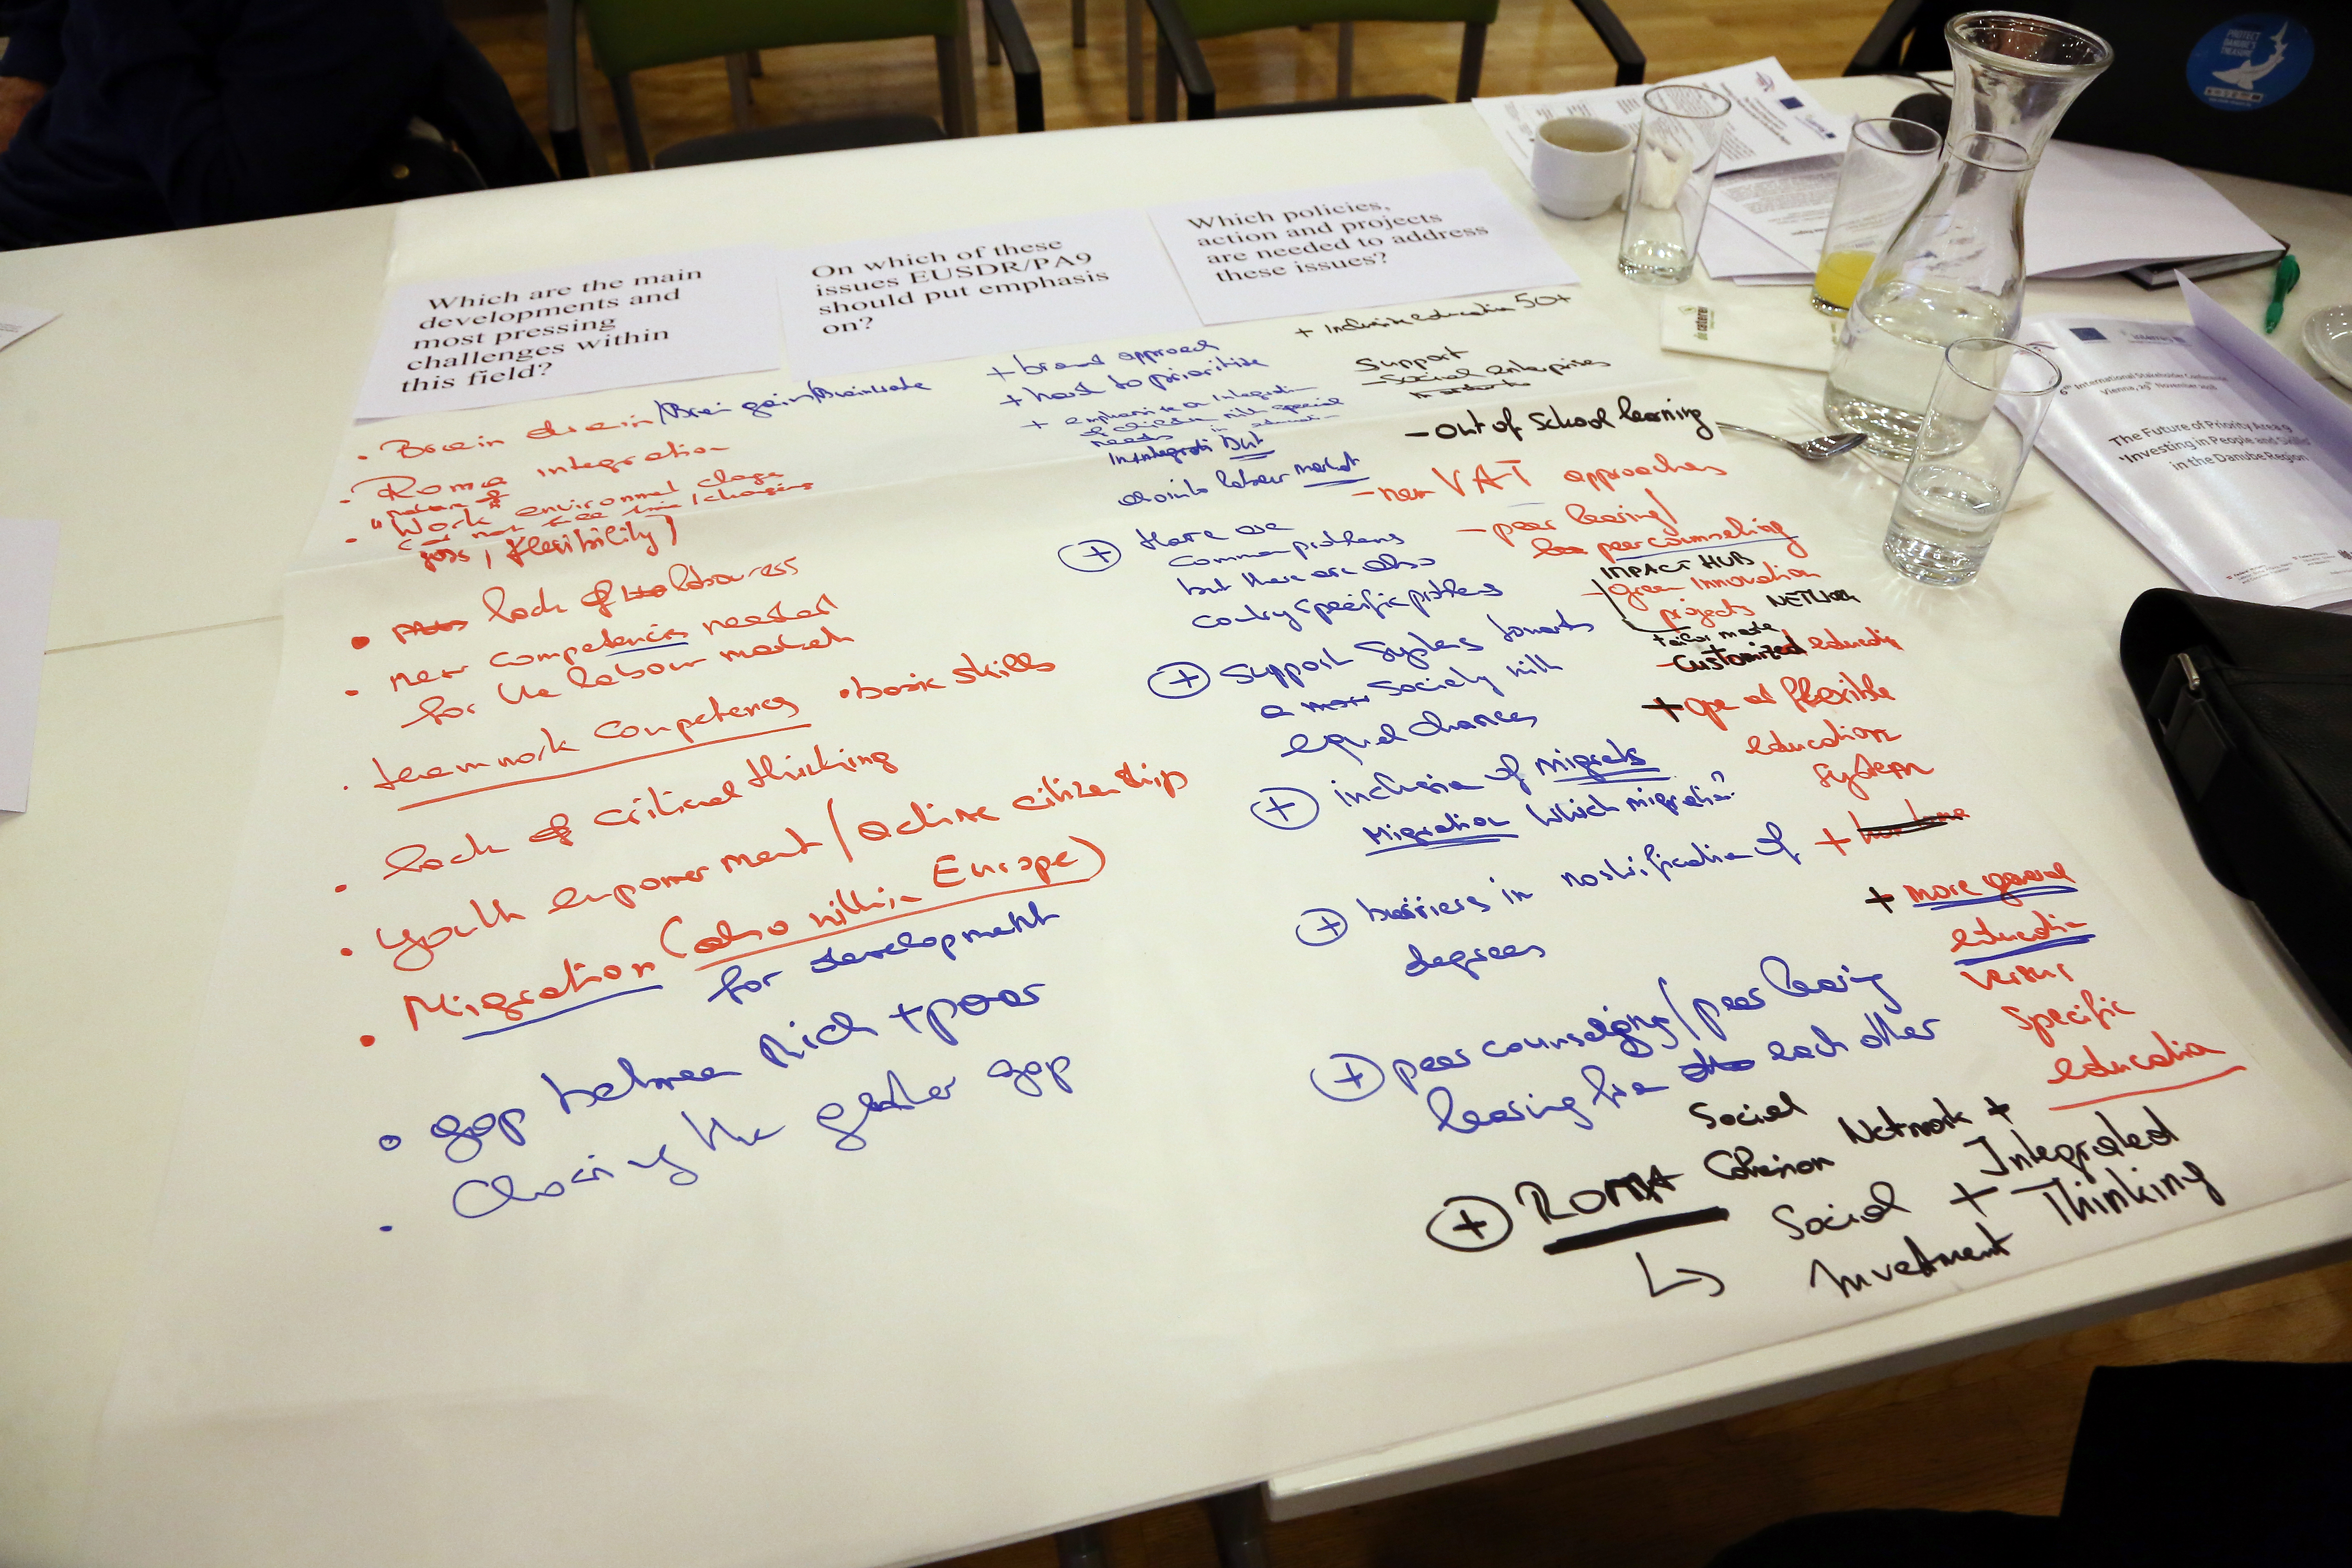 Which are the main
developments and
most pressing
challenges within
this field?
• Brain drain/Brain gain/Brainwaste
• Roma integration
nature of
• "Work" environment change
jobs, flexibility)
• lack of labourers
• new competencies needed
for the labour market
• teamwork competences • basic skills
• lack of critical thinking
• youth empowerment / active citizenship
• Migration (also within Europe)
for development
• gap between Rich + poor
• Closing the gender gap
On which of these
issues EUSDR/PA9
should put emphasis
on?
+ broad approach
+ hard to prioritize
+ emphasize on Integration
of children with special
needs in education
but
labour market
+ there are
common problems
but there are also
country specific problems
+ Support Systems towards
a society with
equal chances
+ inclusion of migrants
Migration which migration?
+ barriers in nostrification of
degrees
+ peer counseling / peer learning
learning from each other
+ ROMA Social Cohesion Network +
↳ Social Investment + Integrated Thinking
Which policies,
action and projects
are needed to address
these issues?
+ Inclusive education 50+
Support
- Social enterprises
- out of School learning
- new VAT approaches
- peer learning/
peer counselling
IMPACT HUB
- green Innovation
projects NETWORK
tailor made
- Customized education
+ open and flexible
education
system
+
+ more general
education
versus
specific
education
PROTECT
DANUBE'S
TREASURE
6th International Stakeholder Conference
Vienna, 29th November 2018
The Future of Priority Area 9
'Investing in People and Skills'
in the Danube Region